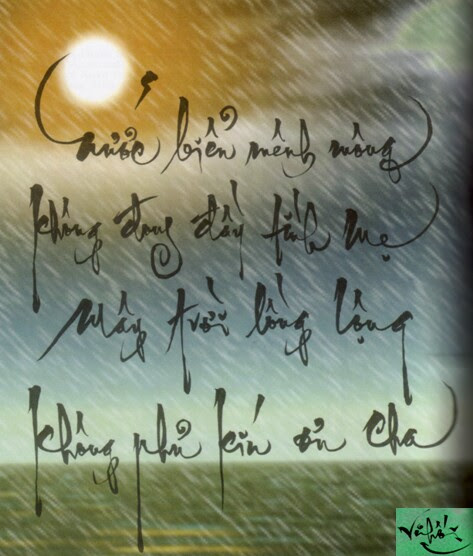 Nước biển mênh mông
không đong đầy tình mẹ
Mây trời lồng lộng
không phủ kín ơn cha